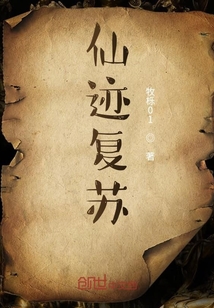 仙迹复苏
牧栎01◎著
创世